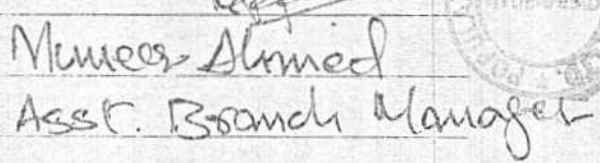 Muneer Ahmed
Asst. Branch Manager